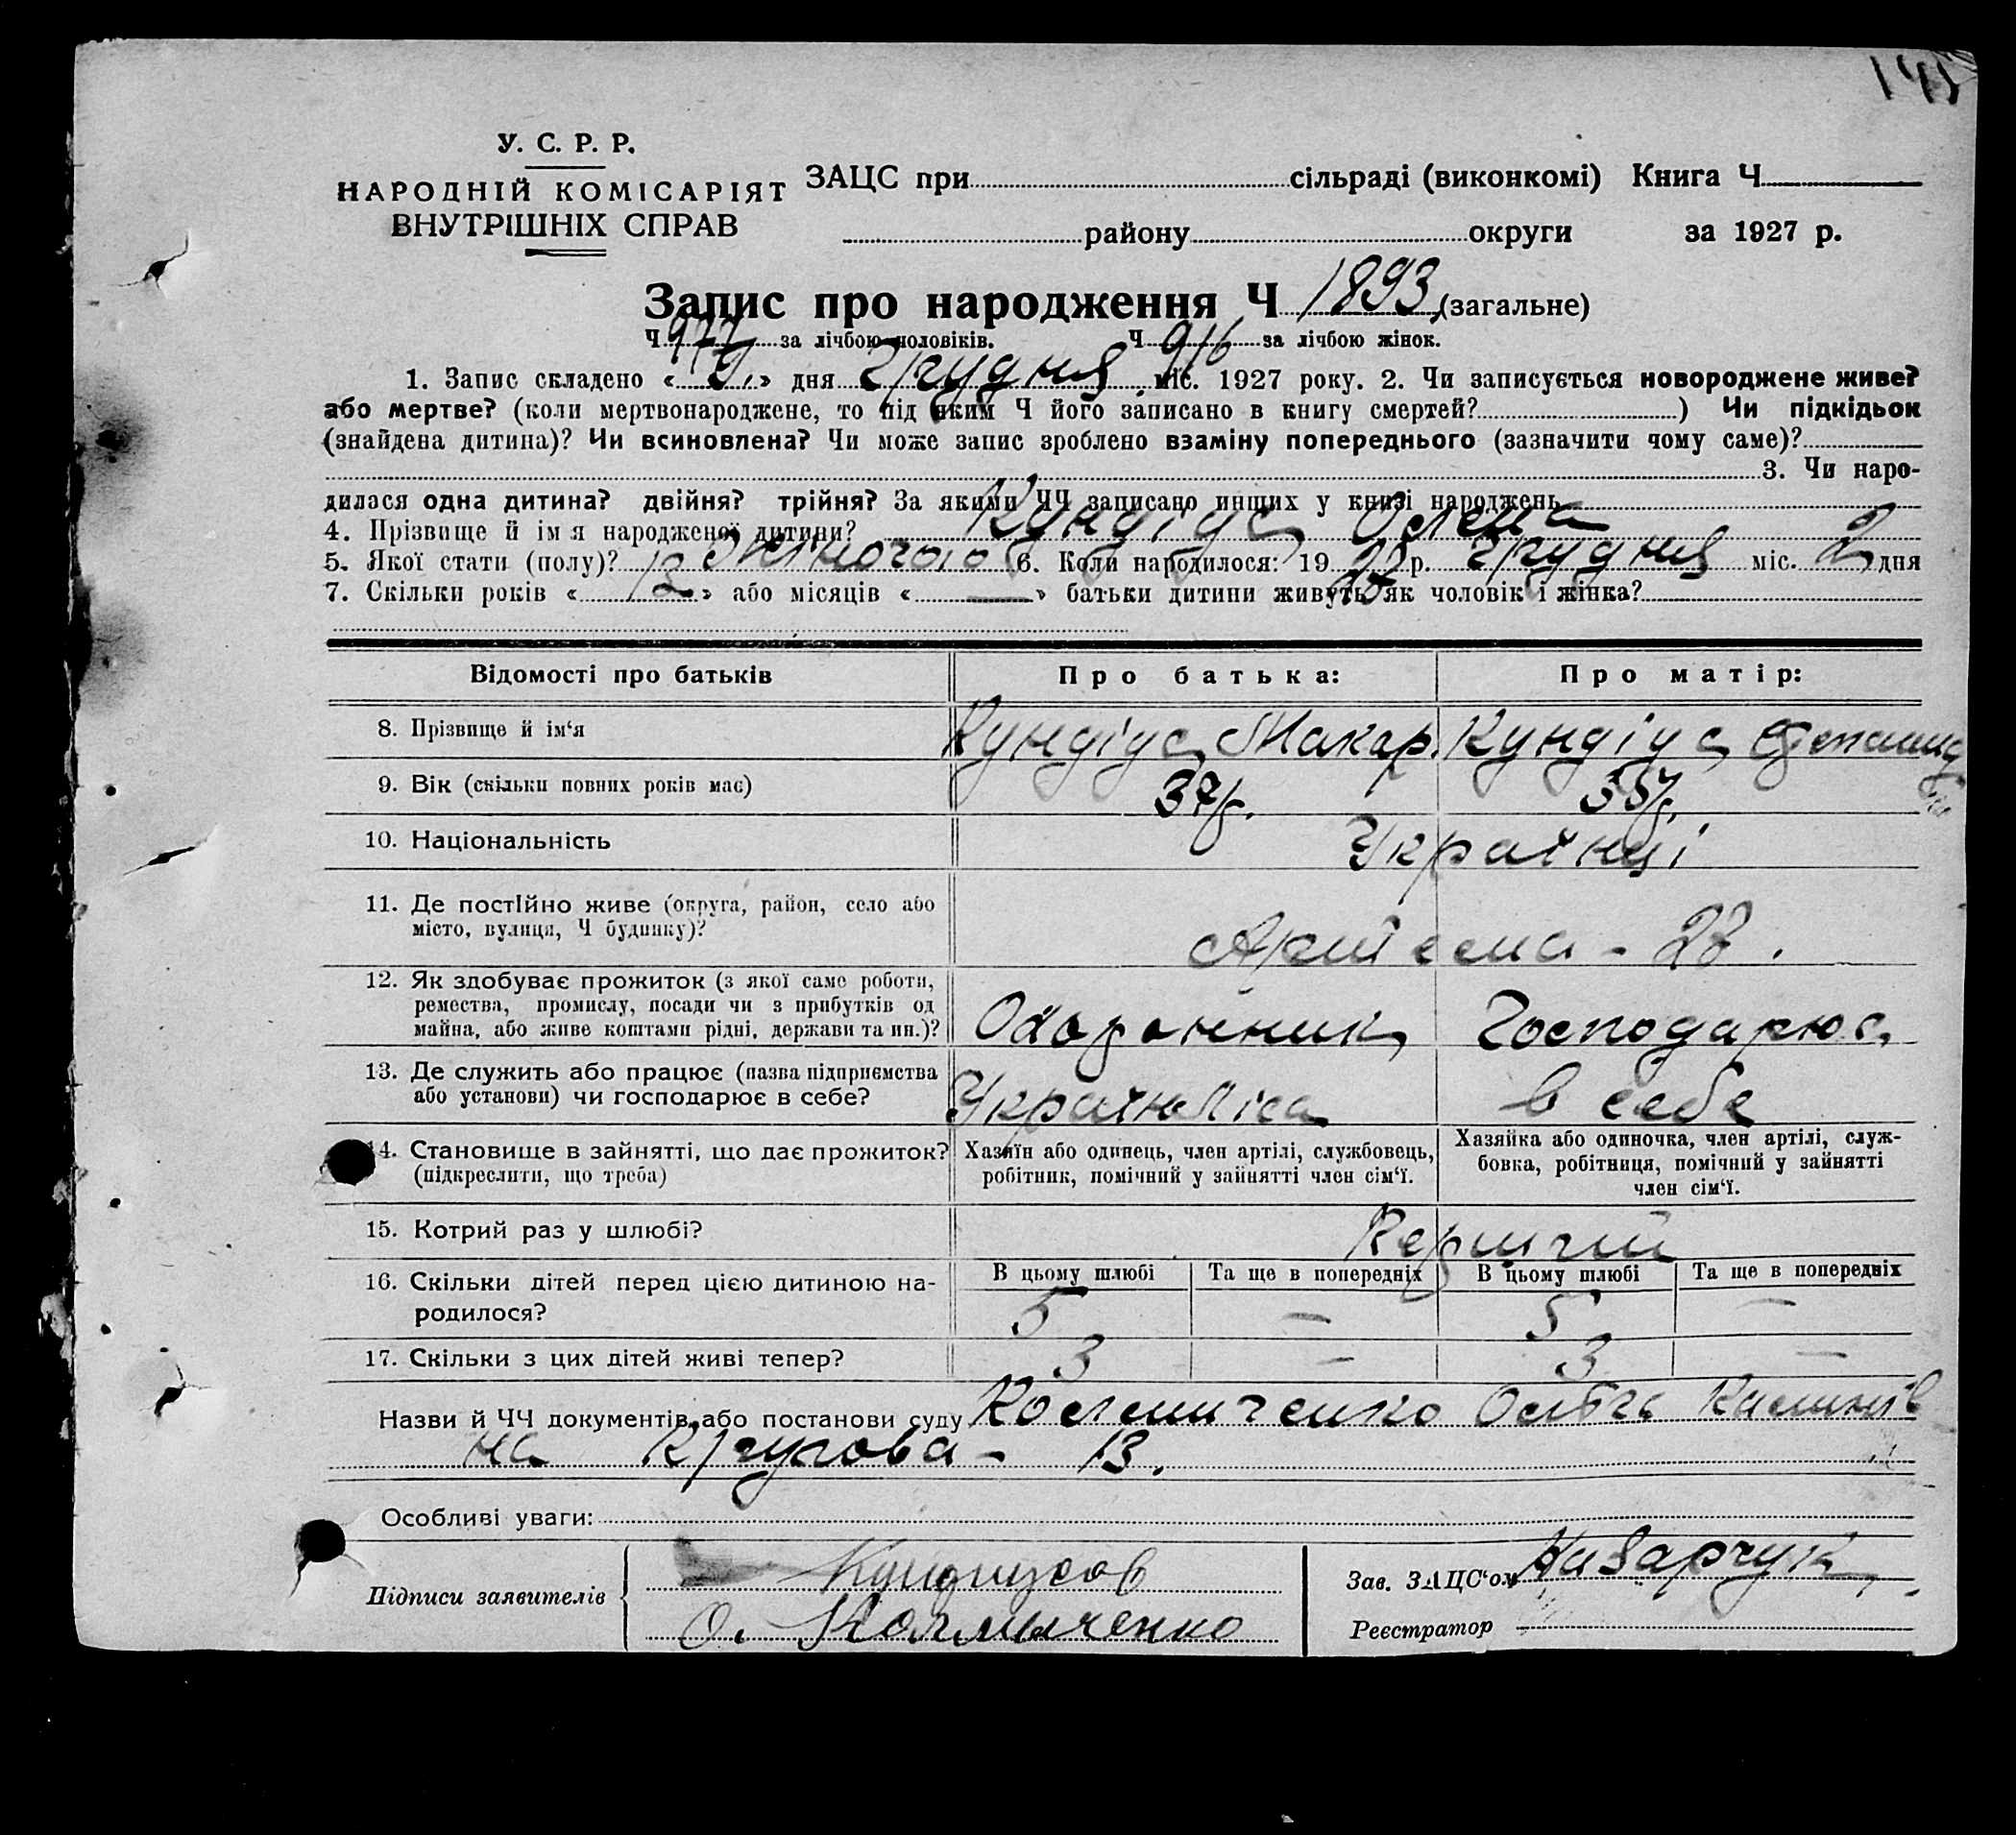 У. С. Р. Р.
НАРОДНІЙ КОМІСАРІЯТ
ВНУТРІШНІХ СПРАВ
ЗАЦС при сільраді (виконкомі) Книга Ч
району округи за 1927 р.
Запис про народження Ч 1893 (загальне)
Ч 977 за лічбою чоловіків. Ч 916 за лічбою жінок.
1. Запис складено « » дня Грудня міс. 1927 року. 2. Чи записується новороджене живе?
або мертве? (коли мертвонароджене, то під яким Ч його записано в книгу смертей? ) Чи підкідьок
(знайдена дитина)? Чи всиновлена? Чи може запис зроблено взаміну попереднього (зазначити чому саме)?
3. Чи наро-
дилася одна дитина? двійня? трійня? За якими ЧЧ записано инших у книзі народжень
4. Прізвище й ім я народженої дитини? Кундіус Олена
5. Якої стати (полу)? Жіночого 6. Коли народилося: 19 27 р. Грудня міс. 2 дня
7. Скільки років « 13 » або місяців « — » батьки дитини живуть як чоловік і жінка?
Відомості про батьків Про батька: Про матір:
8. Прізвище й ім‘я Кундіус Макар. Кундіус
9. Вік (скільки повних років має) 37 р. 35 р.
10. Національність Українці
11. Де постійно живе (округа, район, село або
місто, вулиця, Ч будинку)? Артема - 28.
12. Як здобуває прожиток (з якої саме роботи,
ремества, промислу, посади чи з прибутків од
майна, або живе коштами рідні, держави та ин.)? Охоронник Господарює
13. Де служить або працює (назва підприємства
або установи) чи господарює в себе? Українліса в себе
14. Становище в зайнятті, що дає прожиток?
(підкреслити, що треба)
Хазяїн або одинець, член артілі, службовець,
робітник, помічний у зайнятті член сім‘ї.
Хазяйка або одиночка, член артілі, служ-
бовка, робітниця, помічний у зайнятті
член сім‘ї.
15. Котрий раз у шлюбі? Перший
16. Скільки дітей перед цією дитиною на-
родилося?
В цьому шлюбі Та ще в попередніх В цьому шлюбі Та ще в попередніх
5 — 5 —
17. Скільки з цих дітей живі тепер? 3 — 3 —
Назви й ЧЧ документів або постанови суду Ольга
на Кругова - 13.
Особливі уваги:
Підписи заявителів
О.
Зав. ЗАЦС‘ом Назарчук
Реєстратор